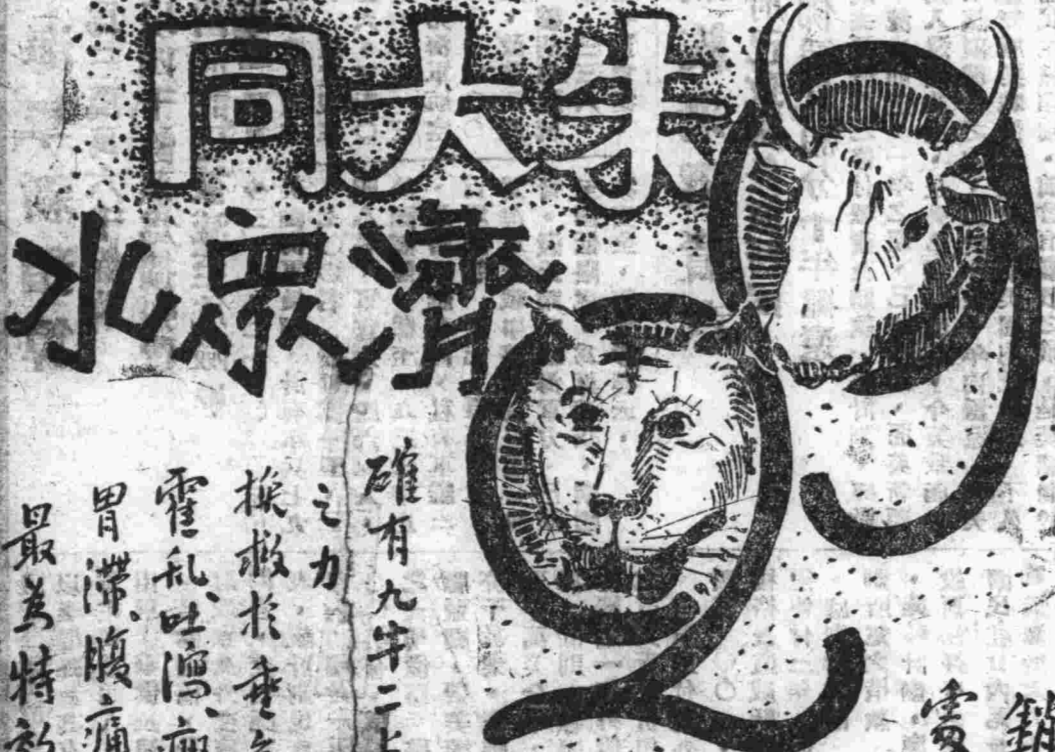 朱大同
濟眾水
9
2
確有九牛二
之力
挽救於垂
霍乱、吐瀉、
胃滯、腹痛
最為特
銷